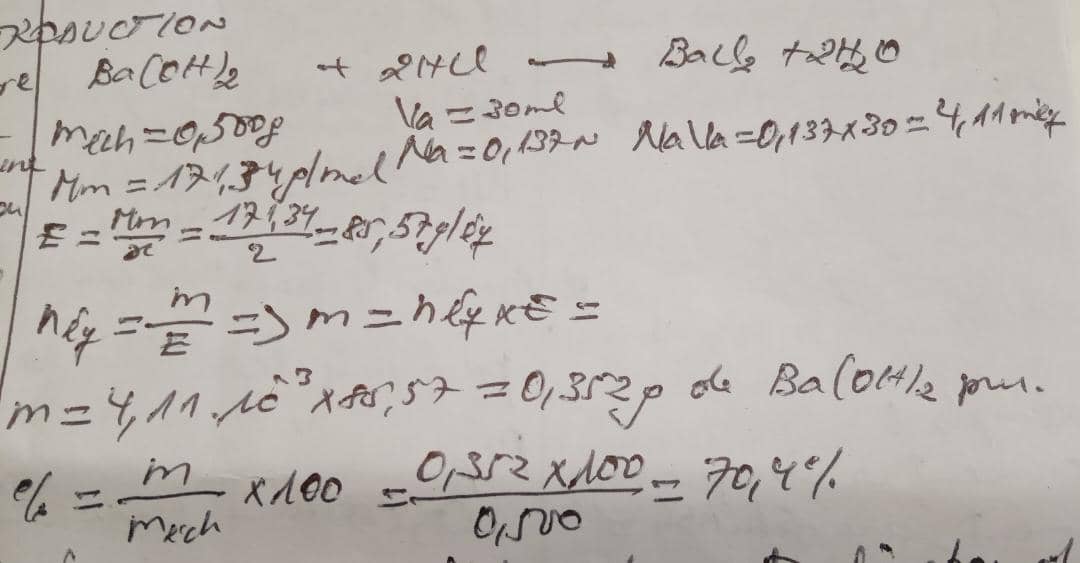 RODUCTION
re Ba(OH)2 + 2HCl → BaCl2 + 2H2O
mech = 0,500g Va = 30ml
Na = 0,137N NaVa = 0,137 x 30 = 4,11 méq
Mm = 171,34g/mol
E = Mm/x = 171,34/2 = 85,57g/éq
néq = m/E => m = néq x E =
m = 4,11.10^-3 x 85,57 = 0,352g de Ba(OH)2 pur.
% = m/mech x 100 = 0,352 x 100/0,500 = 70,4%